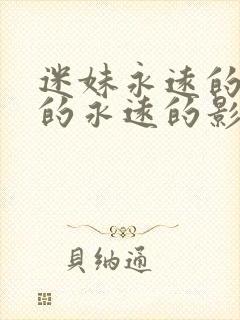 迷妹永远的
的永遠的影
貝納通